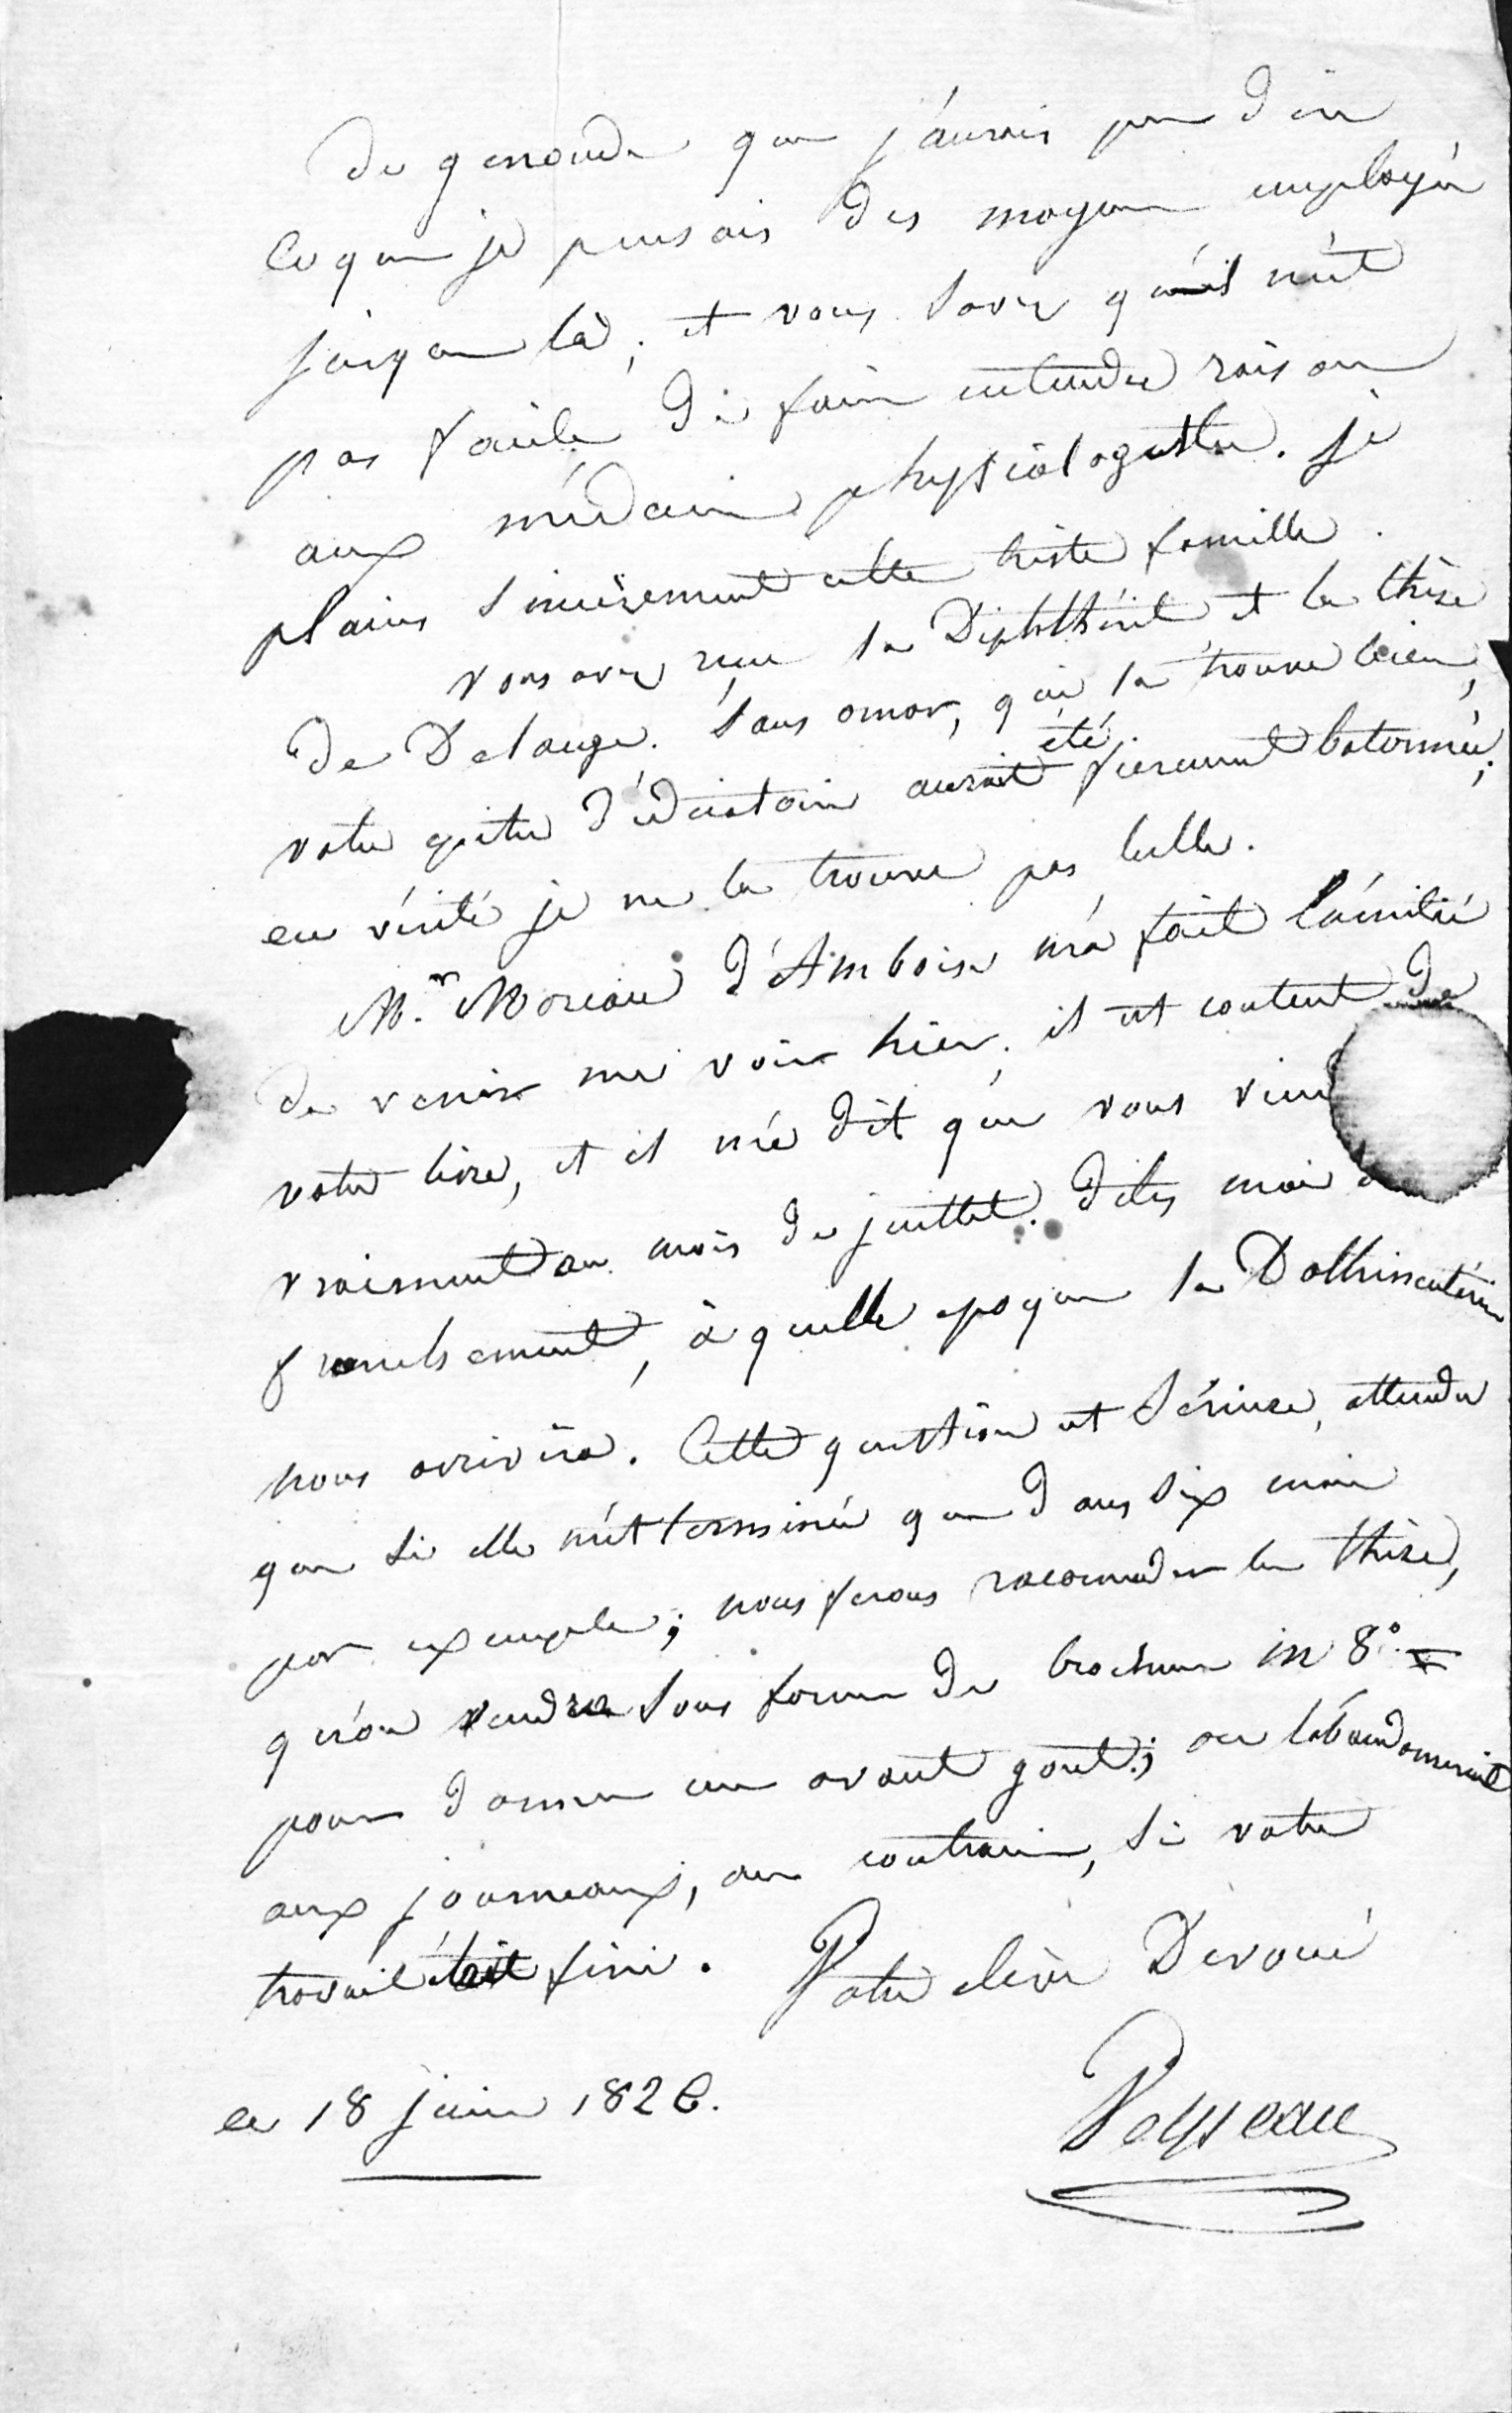 de genoude que j'aurais pu dire
ce que je pensais des moyens employés
jusque là; et vous savez qu'il n'est
pas facile de faire entendre raison
aux médecins physiologistes. je
plains sincèrement cette triste famille.
vous avez reçu la Diphthérite et la thèse
de Delange. Sans omar, qui la trouve bien,
votre épitre dédicatoire aurait été fièrement batonnée;
en vérité je ne la trouve pas belle.
Mr. Moreau d'Amboise m'a fait l'amitié
de venir me voir hier. il est content de
votre livre, et il me dit que vous
vraiment au mois de juillet. dites moi
franchement, à quelle epoque la Dothinentérie
nous arrivera. Cette question est Sérieuse, attendu
que si elle n'est terminée que dans six mois
par exemple; nous ferons raccomoder la thèse,
qu'on vendra sous forme de brochure in 8°.
pour donner un avant gout; on l'abandonnerait
aux journeaux, au contraire, si votre
travail était fini. Votre élève Dévoué
ce 18 juin 1826.